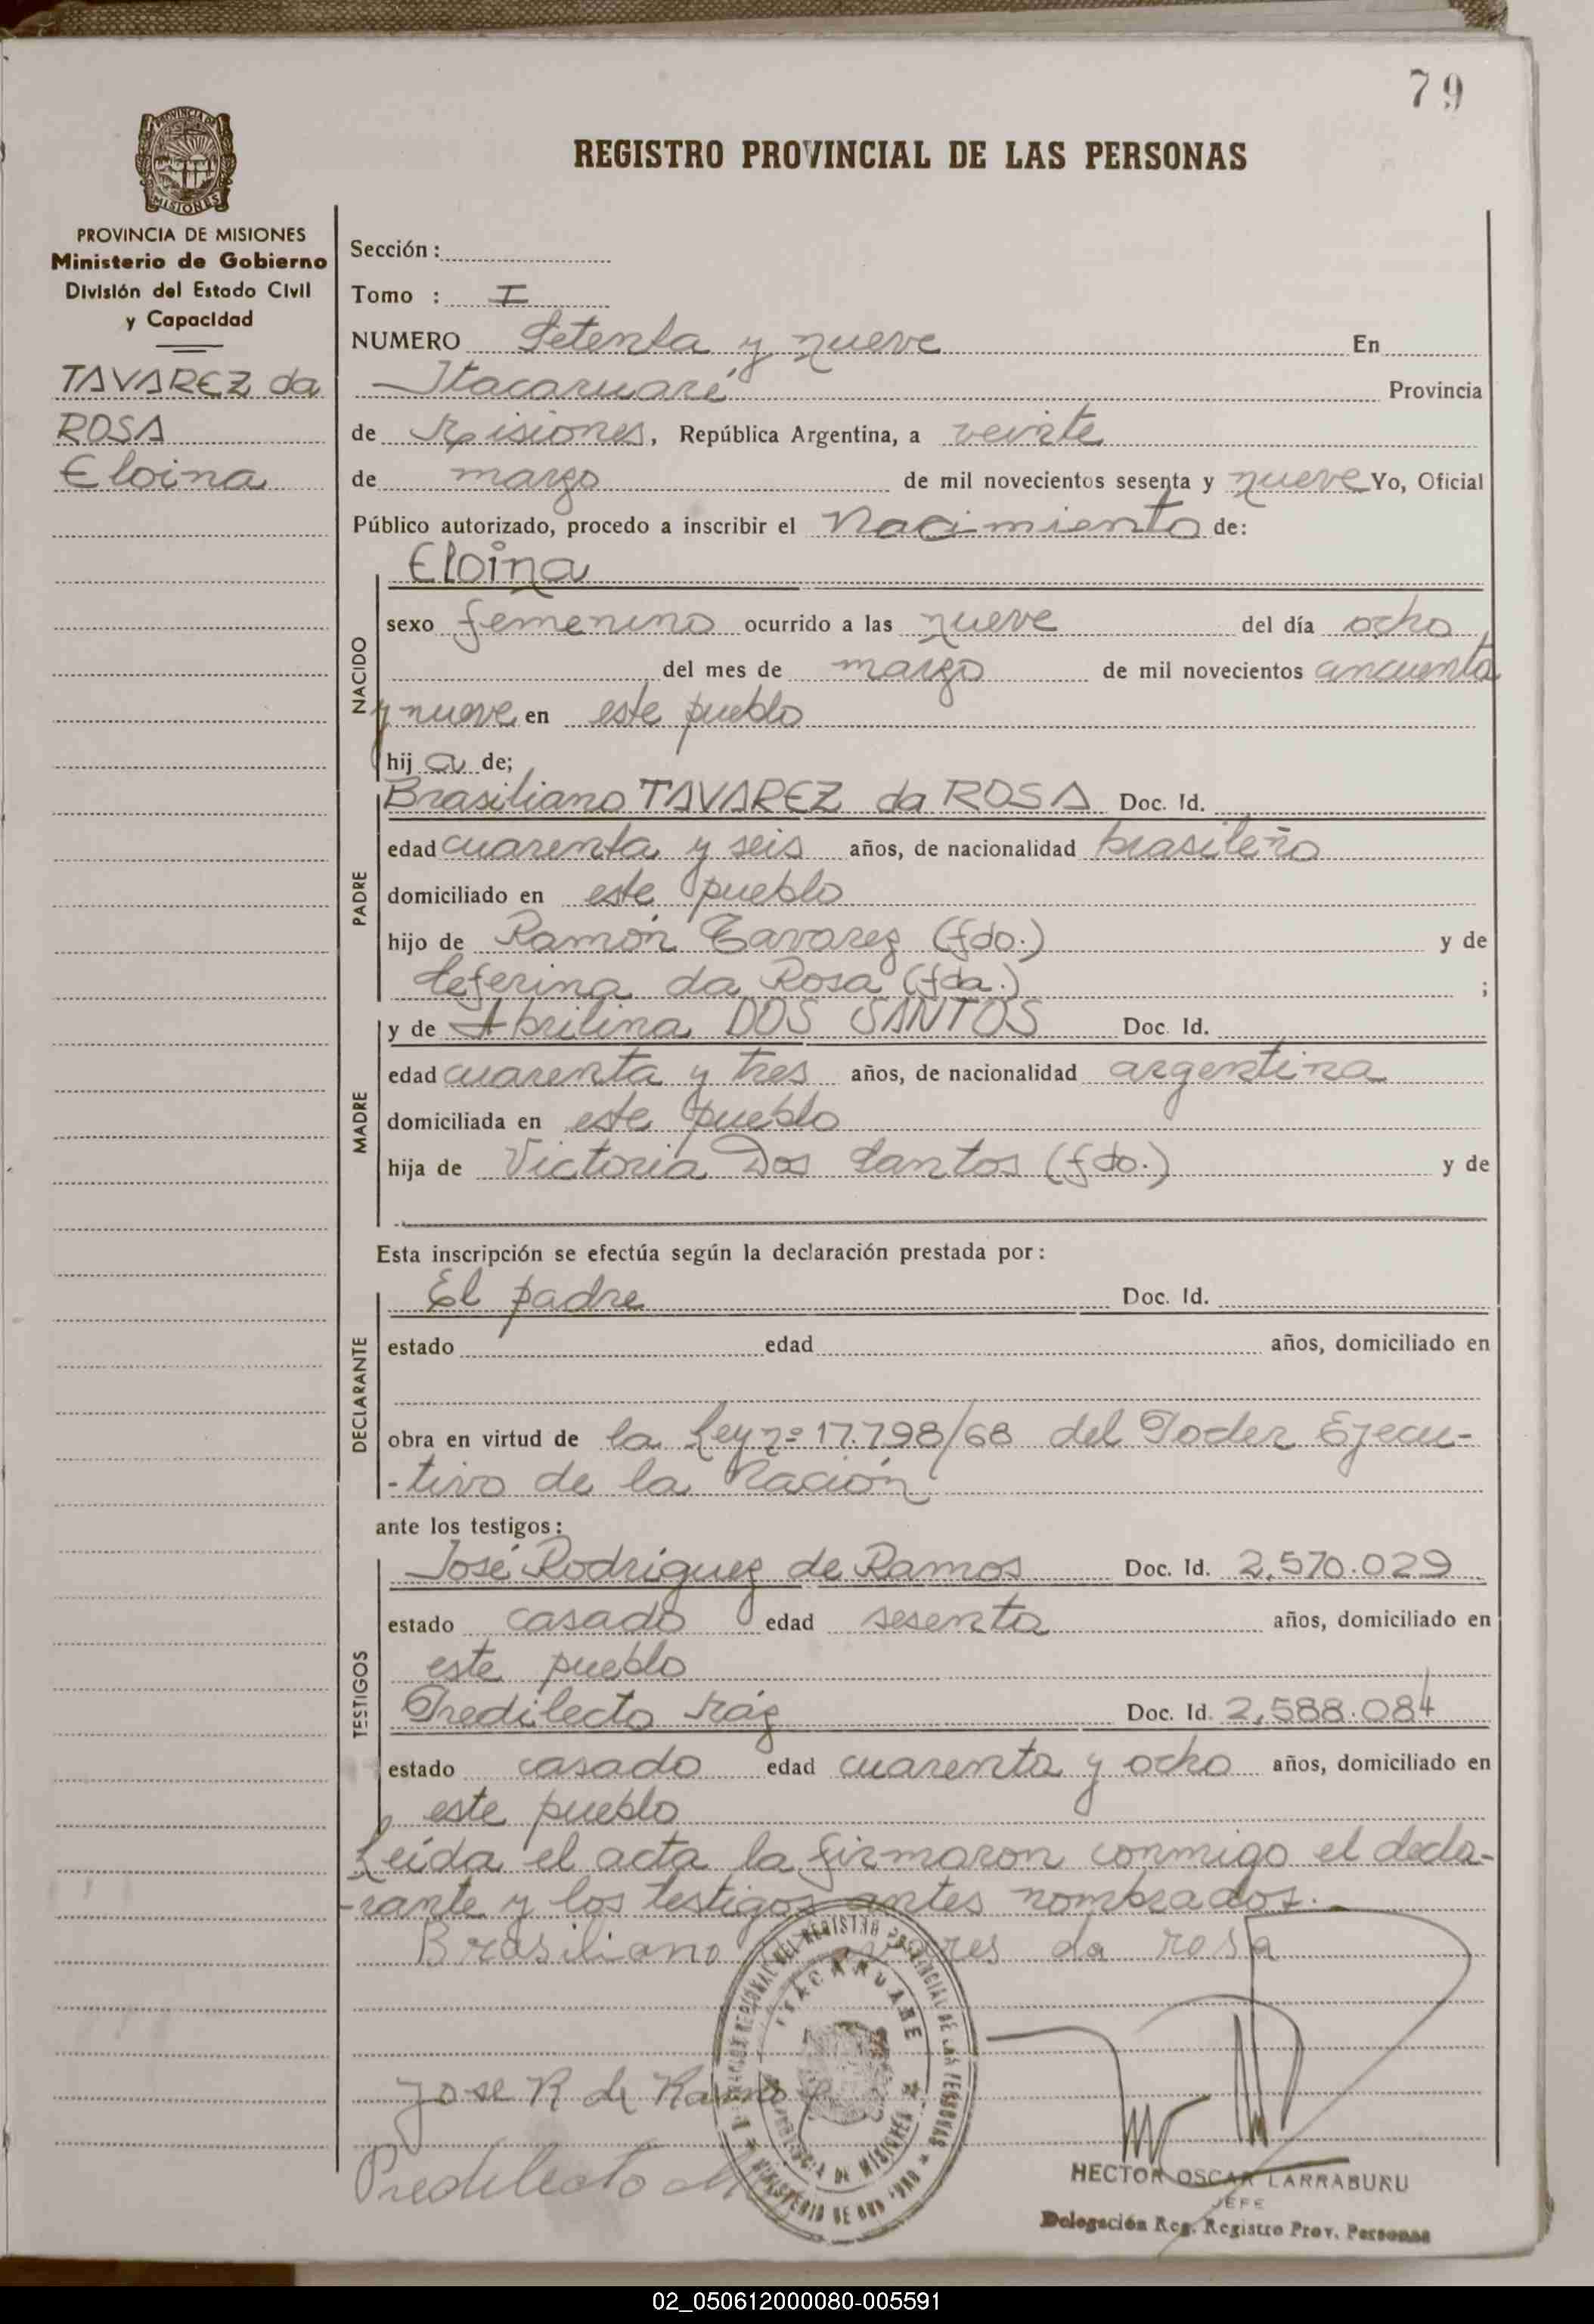 79
PROVINCIA DE MISIONES
REGISTRO PROVINCIAL DE LAS PERSONAS
PROVINCIA DE MISIONES
Ministerio de Gobierno
División del Estado Civil
y Capacidad
TAVAREZ da
ROSA
Eloina
Sección :
Tomo : I
NUMERO Setenta y nueve En
Itacaruaré Provincia
de Misiones, República Argentina, a veinte
de marzo de mil novecientos sesenta y nueve Yo, Oficial
Público autorizado, procedo a inscribir el Nacimiento de:
Eloina
NACIDO
sexo femenino ocurrido a las nueve del día ocho
del mes de marzo de mil novecientos cincuenta
y nueve en este pueblo
hij a de;
PADRE
Brasiliano TAVAREZ da ROSA Doc. Id.
edad cuarenta y seis años, de nacionalidad brasileño
domiciliado en este pueblo
hijo de Ramón Tavarez (fdo.) y de
Ceferina da Rosa (fda.) ;
MADRE
y de Abrilina DOS SANTOS Doc. Id.
edad cuarenta y tres años, de nacionalidad argentina
domiciliada en este pueblo
hija de Victoria Dos Santos (fdo.) y de
Esta inscripción se efectúa según la declaración prestada por :
DECLARANTE
El padre Doc. Id.
estado edad años, domiciliado en
obra en virtud de la Ley nº 17.798/68 del Poder Ejecu-
-tivo de la Nación
ante los testigos :
TESTIGOS
José Rodriguez de Ramos Doc. Id. 2,570.029
estado casado edad sesenta años, domiciliado en
este pueblo
Predilecto Doc. Id. 2,588.084
estado casado edad cuarenta y ocho años, domiciliado en
este pueblo
Leída el acta la firmaron conmigo el decla-
-rante y los testigos antes nombrados.
Brasiliano da rosa
Jose R de Ramos
Predilecto
ITACARUARE
PROVINCIA DE MISIONES
HECTOR OSCAR LARRABURU
JEFE
Delegación Reg. Registro Prov. Personas
02_050612000080-005591